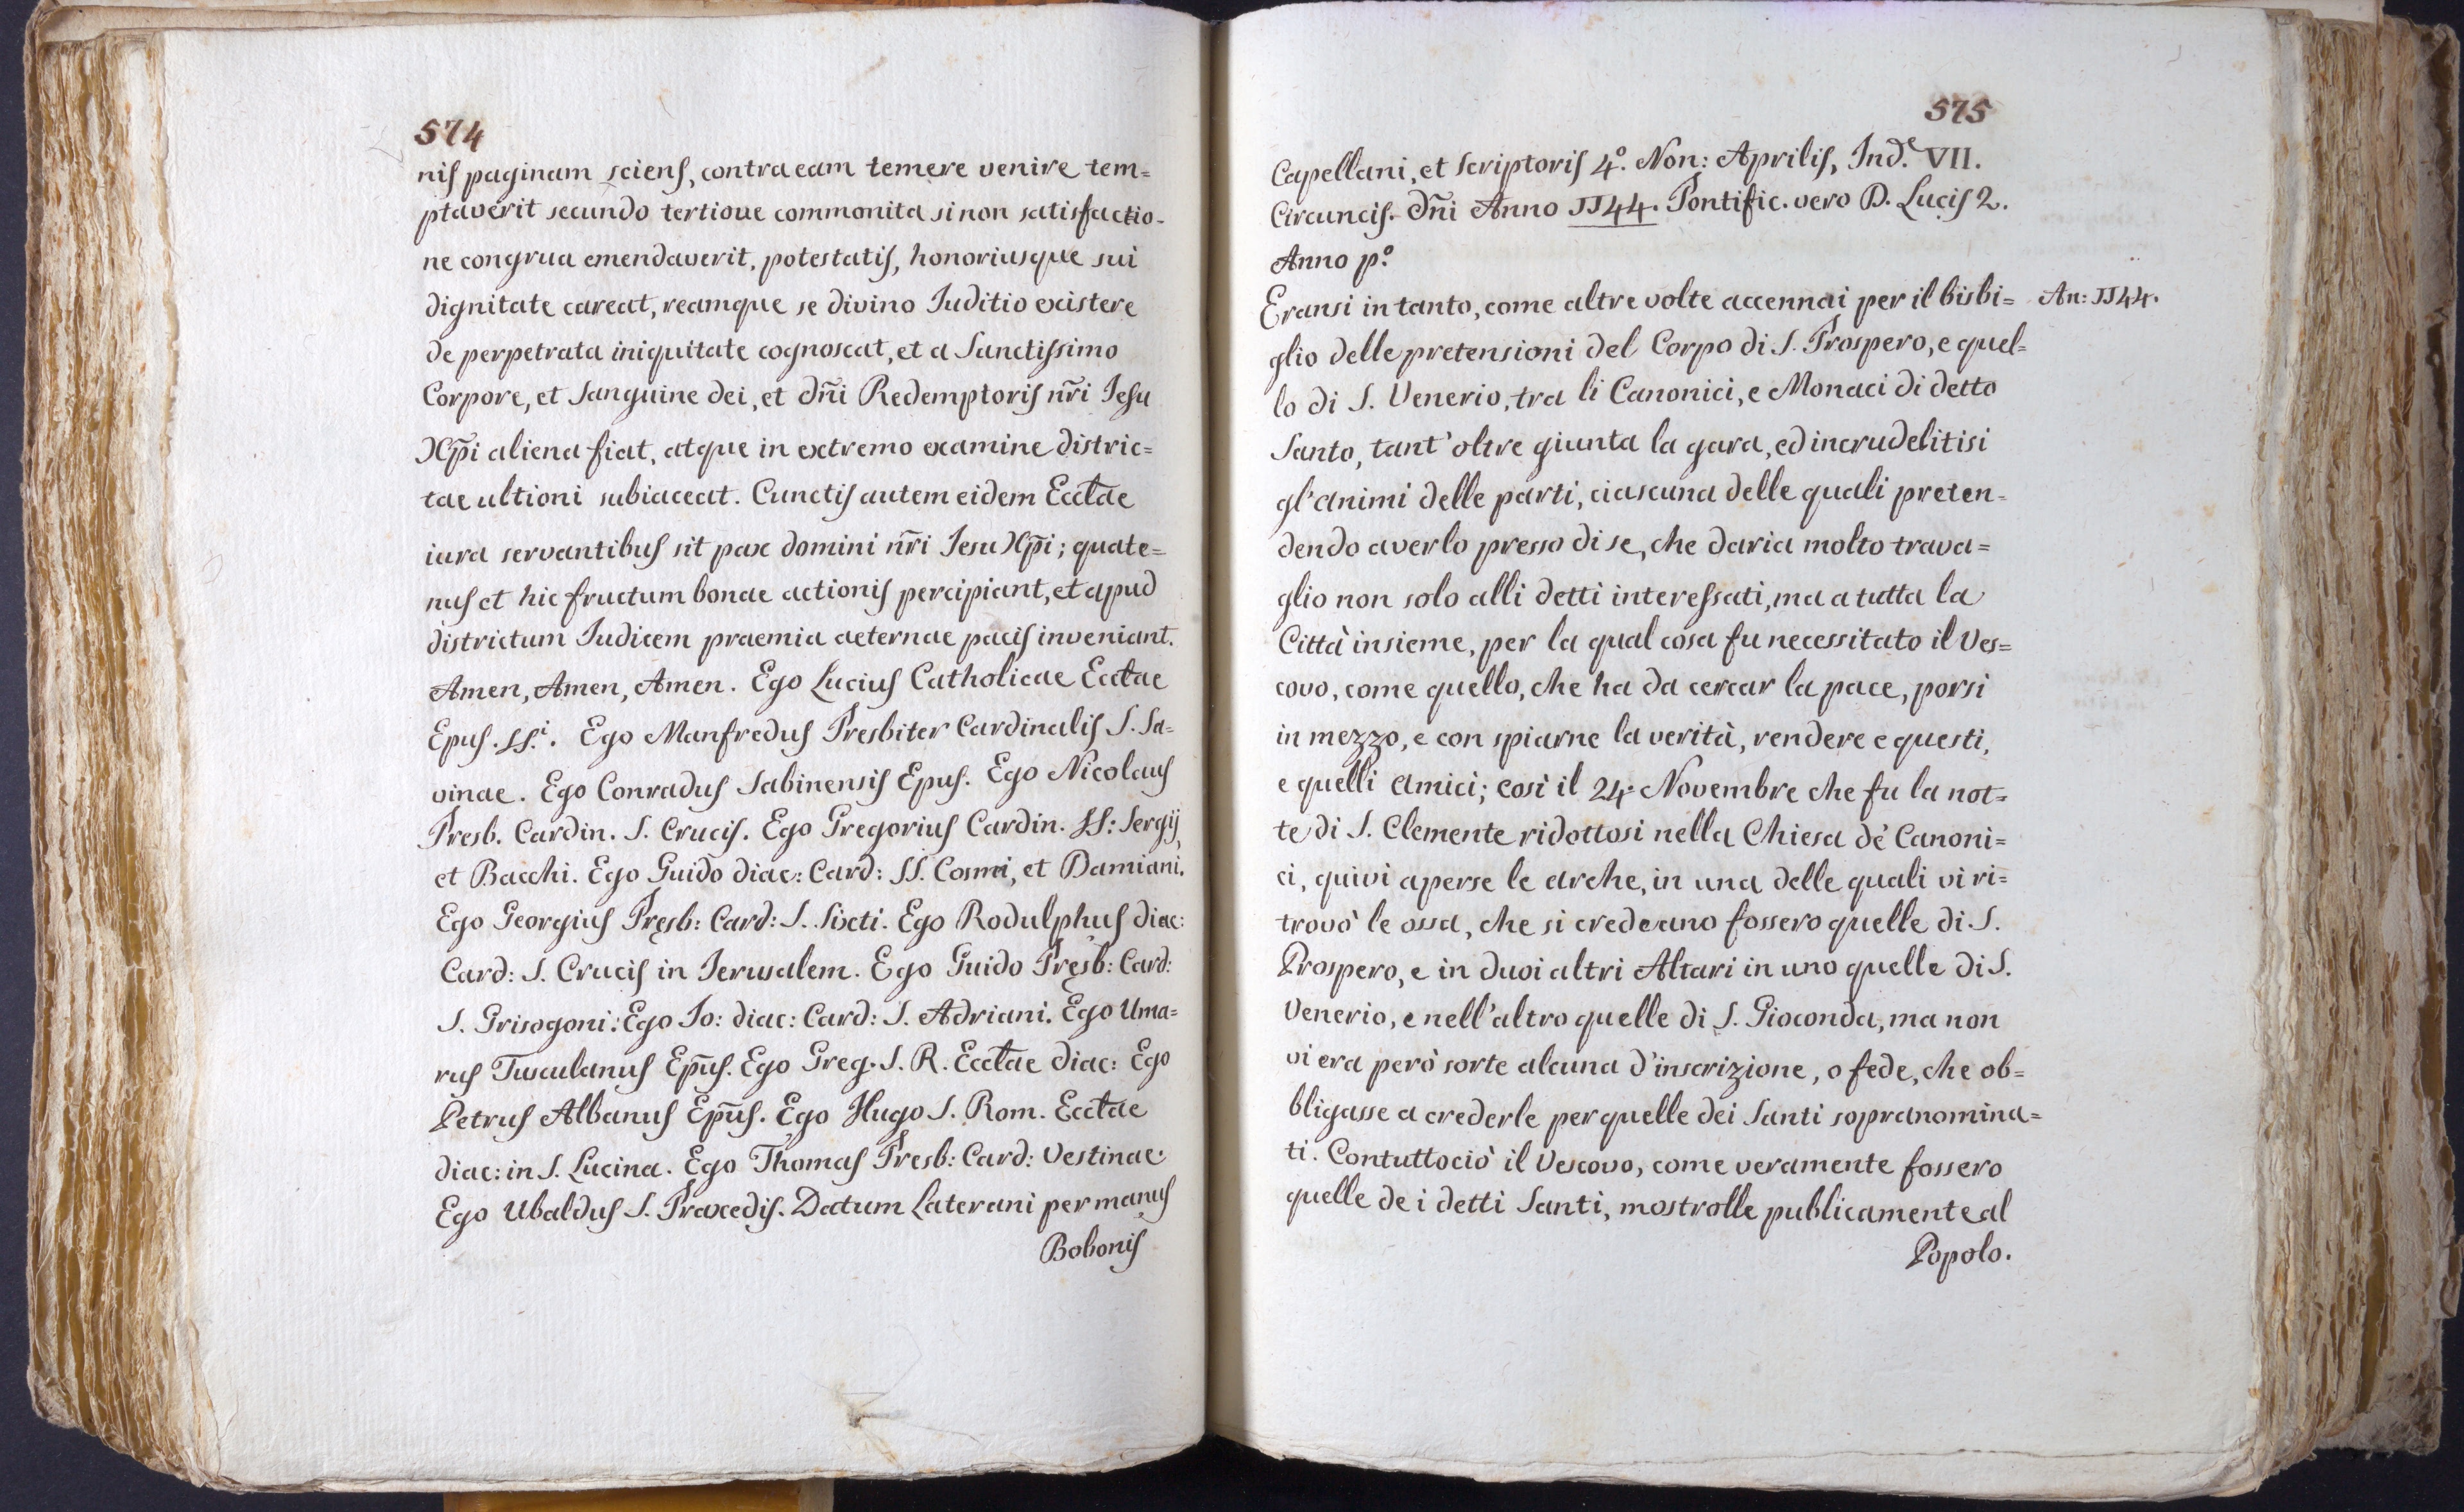 574
nis paginam sciens, contra eam temere venire tem=
ptaverit secundo tertioue commonita si non satisfactio-
ne congrua emendaverit, potestatis, honoriusque sui
dignitate careat, reamque se divino Iuditio existere
de perpetrata iniquitate cognoscat, et a Sanctissimo
Corpore, et Sanguine dei, et dñi Redemptoris ñri Iesu
Xp̃i aliena fiat, atque in extremo examine distric=
tae ultioni subiaceat. Cunctis autem eidem Ecctae
iura servantibus sit pax domini ñri Iesu Xp̃i; quate=
nus et hic fructum bonae actionis percipiant, et apud
districtum Iudicem praemia aeternae pacis inveniant.
Amen, Amen, Amen. Ego Lucius Catholicae Ecctae
Epus. SS.i. Ego Manfredus Presbiter Cardinalis S. Sa=
vinae. Ego Conradus Sabinensis Epus. Ego Nicolaus
Presb. Cardin. S. Crucis. Ego Gregorius Cardin. SS: Sergij,
et Bacchi. Ego Guido diac: Card: SS. Cosmi, et Damiani.
Ego Georgius Presb: Card: S. Sixti. Ego Rodulphus diac:
Card: S. Crucis in Ierusalem. Ego Guido Presb: Card:
S. Grisogoni: Ego Io: diac: Card: S. Adriani. Ego Uma=
rus Tusculanus Ep̃us. Ego Greg. S. R. Ecctae diac: Ego
Petrus Albanus Ep̃us. Ego Hugo S. Rom. Ecctae
diac: in S. Lucina. Ego Thomas Presb: Card: Vestinae.
Ego Ubaldus S. Praxedis. Datum Laterani per manus
Bobonis
575
Capellani, et Scriptoris 4.º Non: Aprilis, Ind.e VII.
Circuncis. dñi Anno JJ44. Pontific. vero D. Lucis 2.
Anno p.º
Eransi in tanto, come altre volte accennai per il bisbi= An: JJ44.
glio delle pretensioni del Corpo di S. Prospero, e quel=
lo di S. Venerio, tra li Canonici, e Monaci di detto
Santo, tant'oltre giunta la gara, ed incrudelitisi
gl'animi delle parti, ciascuna delle quali preten-
dendo averlo presso di se, che daria molto trava=
glio non solo alli detti interessati, ma a tutta la
Città insieme, per la qual cosa fu necessitato il Ves=
covo, come quello, che ha da cercar la pace, porsi
in mezzo, e con spiarne la verità, rendere e questi,
e quelli amici; così il 24. Novembre che fu la not=
te di S. Clemente ridottosi nella Chiesa de' Canoni=
ci, quivi aperse le arche, in una delle quali vi ri=
trovò le ossa, che si credeano fossero quelle di S.
Prospero, e in duoi altri Altari in uno quelle di S.
Venerio, e nell'altro quelle di S. Gioconda, ma non
vi era però sorte alcuna d'inscrizione, o fede, che ob=
bligasse a crederle per quelle dei Santi sopranomina=
ti. Contuttociò il Vescovo, come veramente fossero
quelle de i detti Santi, mostrolle publicamente al
Popolo.